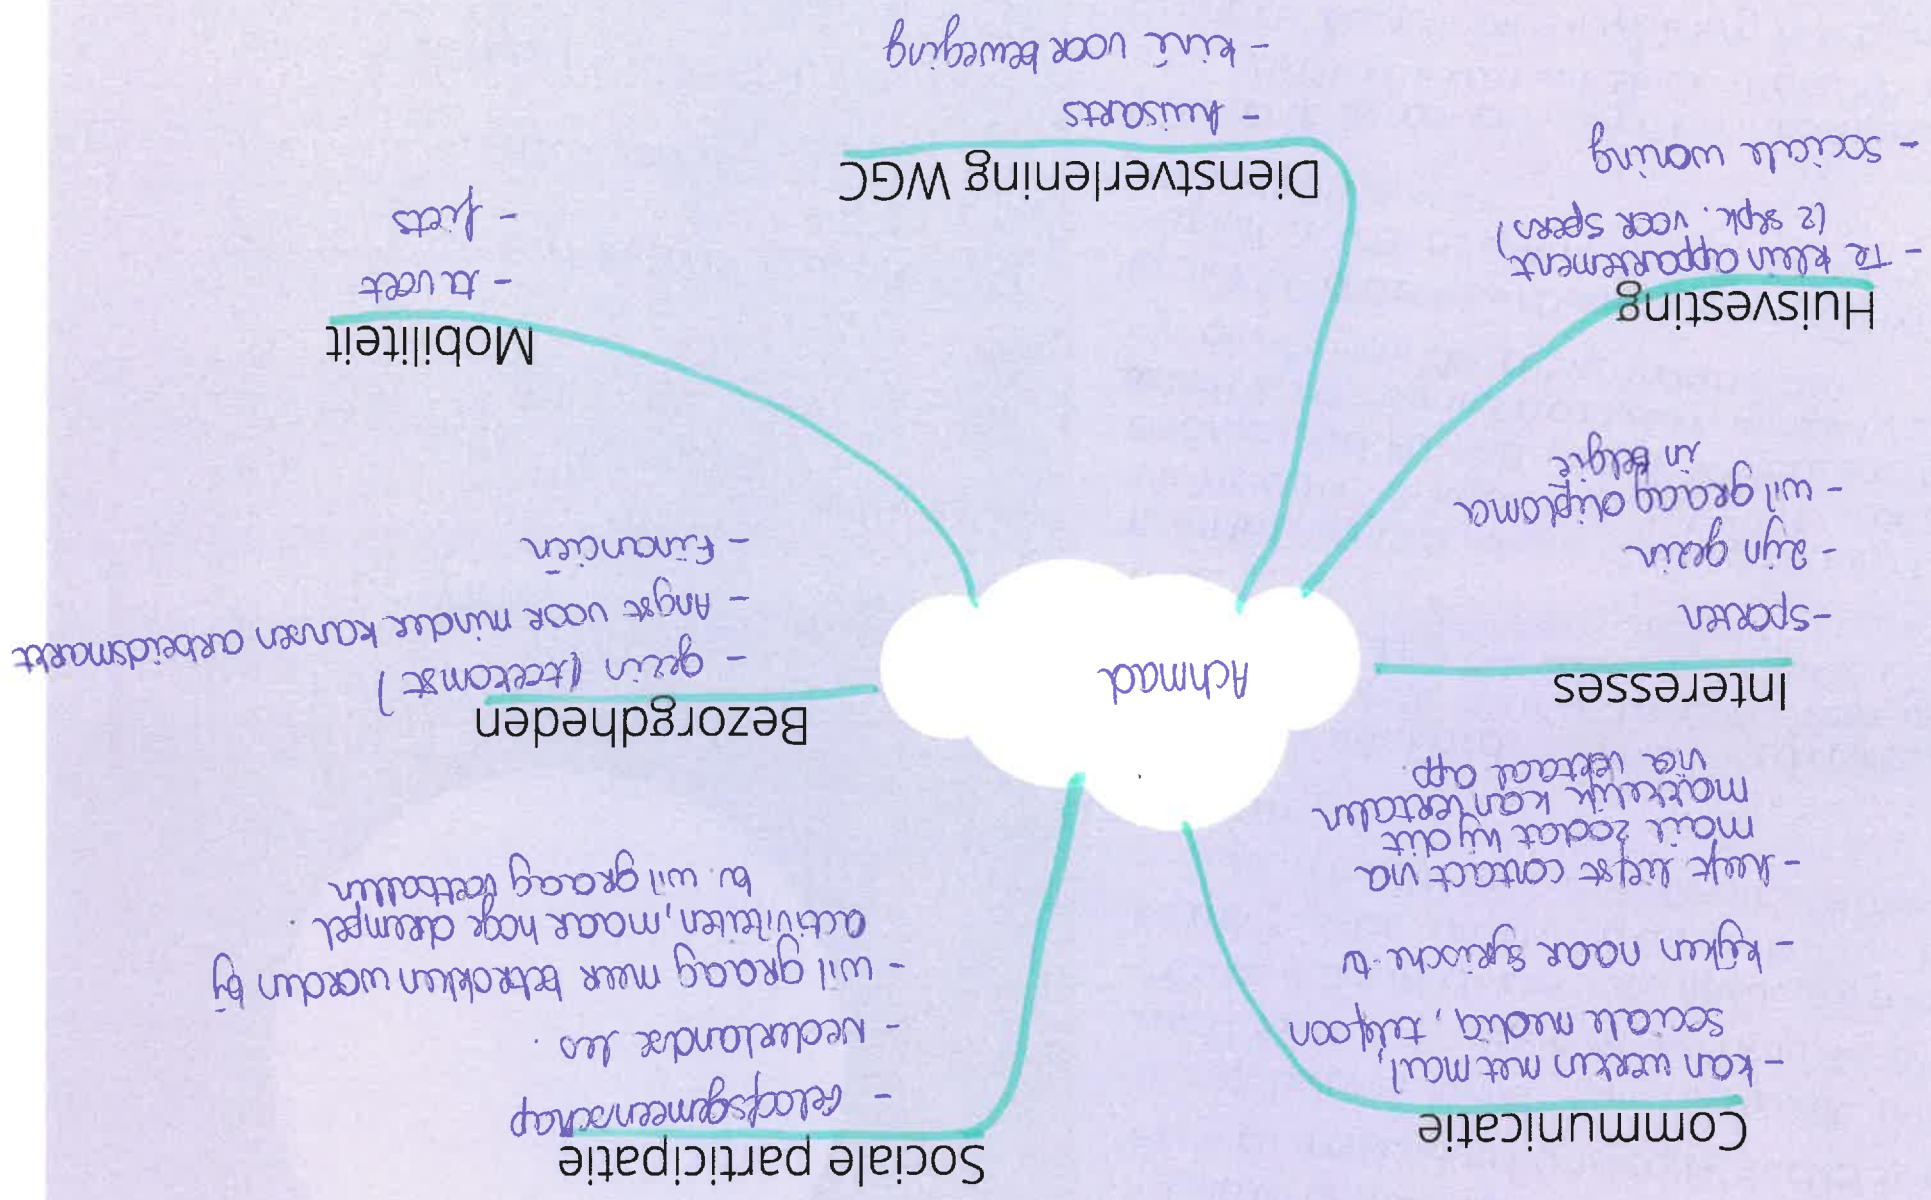 Communicatie
- kan werken met mail,
sociale media, telefoon
- kijken naar syrische tv
- heeft liefst contact via
mail zodat hij dit
makkelijk kan vertalen
via vertaal app.
Sociale participatie
- Geloofsgemeenschap
- Nederlandse les.
- wil graag meer betrokken worden bij
activiteiten, maar hoge drempel.
bv. wil graag voetballen
Achmad
Interesses
- Sporten
- zijn gezin
- wil graag diploma
in België
Bezorgdheden
- gezin (toekomst)
- Angst voor minder kansen arbeidsmarkt
- Financiën
Huisvesting
- Te klein appartement
(2 slpk. voor 5pers)
- sociale woning
Dienstverlening WGC
- huisarts
- kiné voor beweging
Mobiliteit
- te voet
- fiets